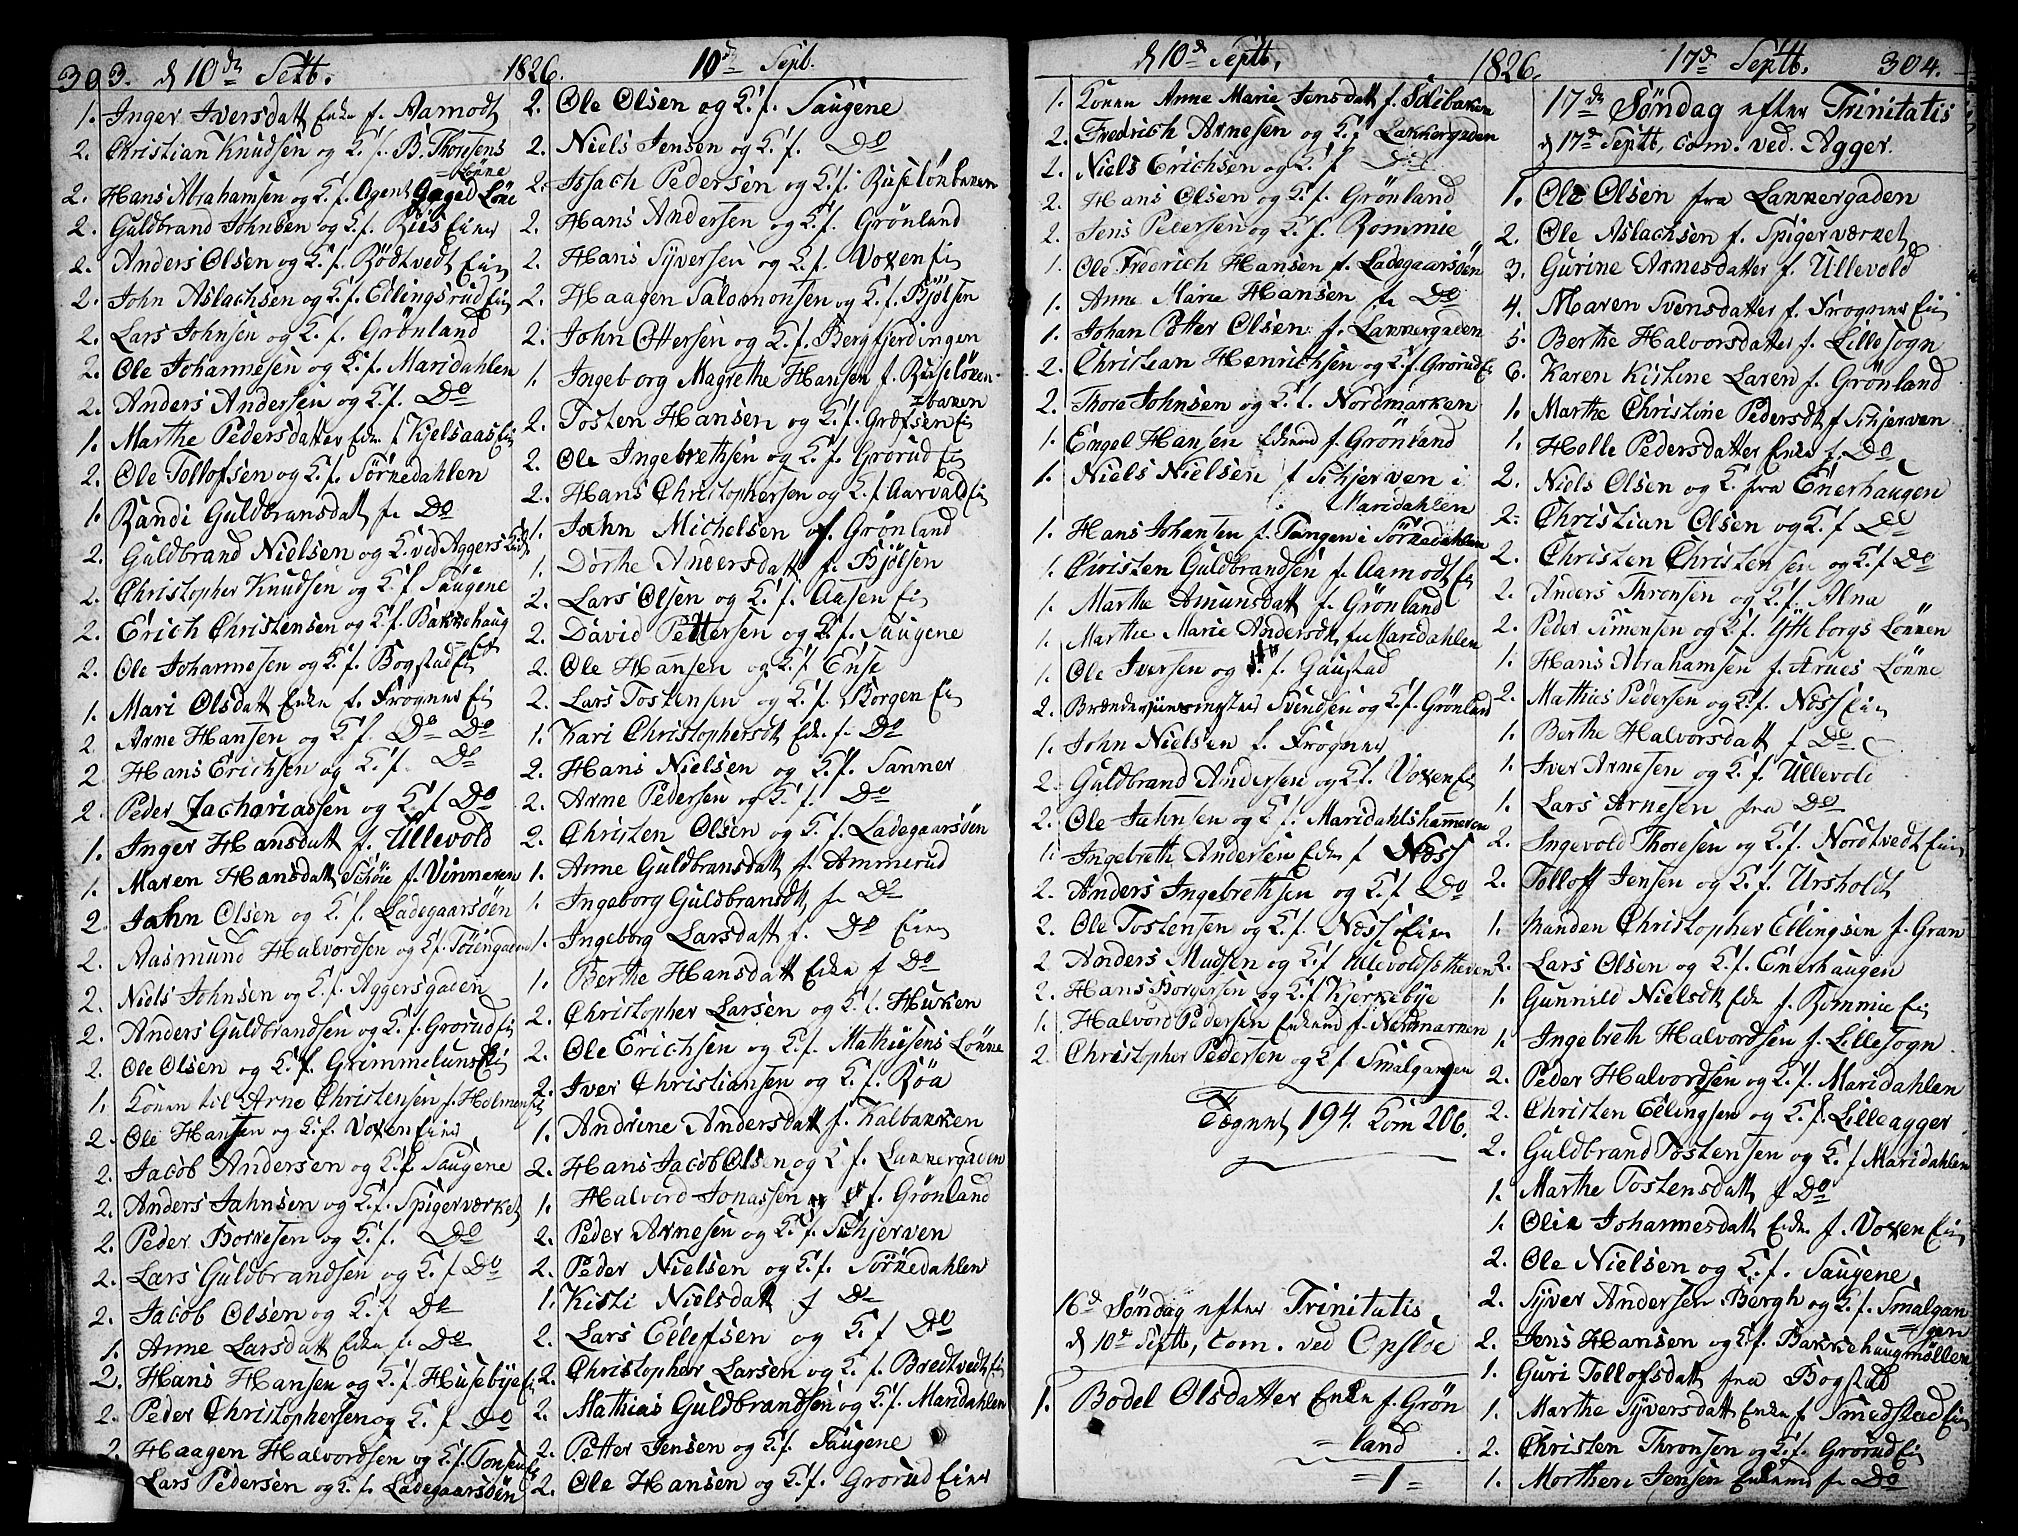 303. d 10de Septb. 1826.
1. Inger Iversdatt Enke f. Aamodt
2. Christian Knudsen og K. f. B. Thoresens
= Lönne
2. Hans Abrahamsen og K. f. Agent
2. Guldbrand Johnsen og K. f. Riis Eier
2. Anders Olsen og K. f. Rödtvedt Eie
2. John Aslachsen og K. f. Ellingsrud Eie
2. Lars Johnsen og K. f. Grönland
2. Ole Johannesen og K. f. Maridahlen
2. Anders Andersen og K. f. Do
1. Marthe Pedersdatter Enke f. Kjelsaas Ei
2. Ole Tollofsen og K. f. Sörkedahlen
1. Randi Guldbransdatt f. Do
2. Guldbrand Nielsen og K. ved Aggers
2. Christopher Knudsen og K. f. Saugene
2. Erich Christensen og K. f. Bakkehaug
2. Ole Johannesen og K. f. Bogstad Ei
1. Mari Olsdatt Enke f. Frogner Ei
2. Arne Hansen og K. f. Do Do
2. Hans Erichsen og K. f. Do
2. Peder Zachariassen og K. f. Do
1. Inger Hansdatt f. Ullevold
1. Maren Hansdatt Schöie f. Vinneren
2. Jahn Olsen og K. f. Ladegaarsöen
2. Aasmund Halvordsen og K. f.
2. Niels Johnsen og K. f. Aggersgaden
2. Anders Guldbrandsen og K. f. Grorud Ei
2. Ole Olsen og K. f. Grimmelund Ei
1. Konen til Arne Christensen f. Holmen
2. Ole Hansen og K. f. Voxen Eier
2. Jacob Andersen og K. f. Saugene
2. Anders Jahnsen og K. f. Spigerværket
2. Peder Borresen og K. f. Do
2. Lars Guldbrandsen og K. f. Do
2. Jacob Olsen og K. f. Do
1. Anne Larsdatt Enke f. Do
2. Hans Hansen og K. f. Husebÿe Ei
2. Peder Christophersen og K. f. Do
2. Haagen Halvordsen og K. f. Tonsen Ei
Lars Pedersen og K. f. Ladegaarsöen
10de Sept.
2. Ole Olsen og K. f. Saugene
2. Niels Jensen og K. f. Do
2. Issach Pedersen og K. f. Ruselönbaken
2. Hans Andersen og K. f. Grönland
2. Hans Syversen og K. f. Voxen Ei
2. Haagen Salomonsen og K. f. Bjölsen
2. John Ottersen og K. f. Bergfjerdingen
1. Ingeborg Magrethe Hansen f. Ruselöken
= baken
2. Tosten Hansen og K. f. Grefsen Ei
2. Ole Ingebrethsen og K. f. Grorud Ei
2. Hans Christophersen og K. f. Aarvald Ei
1. Jahn Michelsen f. Grönland
1. Dorthe Andersdatt f. Bjölsen
2. Lars Olsen og K. f. Aasen Ei
2. David Pettersen og K. f. Saugene
2. Ole Hansen og K. f. Ense
2. Lars Tostensen og K. f. Borgen Ei
1. Kari Christophersdt Enk. f. Do
2. Hans Nielsen og K. f. Sanner
2. Arne Pedersen og K. f. Do
2. Christen Olsen og K. f. Ladegaarsöen
1. Anne Guldbransdatt f. Ammerud
1. Ingeborg Guldbransdt f. Do
1. Ingeborg Larsdatt f. Do Eie
1. Berthe Hansdatt Enke f Do
2. Christopher Larsen og K. f. Huken
2. Ole Erichsen og K. f. Mathiesens Lönne
2. Iver Christiansen og K. f. Röa
1. Andrine Andersdatt f. Kalbakken
2. Hans Jacob Olsen og K f. Lakkergaden
1. Halvord Jonassen f. Grönland
2. Peder Arnesen og K. f. Schjerven
2. Peder Nielsen og K. f. Sörkedahlen
1. Kisti Nielsdatt f Do
2. Lars Ellefsen og K. f Do
2. Christopher Larsen og K. f. Bredtvedt Ei
2. Mathias Guldbrandsen og K. f. Maridahlen
2. Petter Jensen og K. f. Saugene
2. Ole Hansen og K. f. Grorud Eier
d 10de Septb. 1826.
1. Konen Anne Marie Jensdatt f. Solibaken
2. Fredrich Arnesen og K. f Lakkergaden
2. Niels Erichsen og K. f Do
2. Hans Olsen og K. f. Grönland
2. Jens Pedersen og K. f. Rommie
1. Ole Fredrich Hansen f. Ladegaarsöen
1. Anne Marie Hansen f. Do
1. Johan Petter Olsen f. Lakkergaden
2. Christian Henrichsen og K. f. Grorud Ei
2. Thore Johnsen og K. f. Nordmarken
1. Engel Hansen Enkem f. Grönland
1. Niels Nielsen f Schjerven i
Maridahlen
1. Hans Johansen f. Tangen i Sörkedahlen
1. Christen Guldbrandsen f. Aamodt Ei
1. Marthe Amunsdatt f. Grönland
1. Marthe Marie Andersdt fra Maridahlen
1. Ole Iversen og f. Gaustad
2. Svendsen og K. f. Grönland
1. John Nielsen f. Frogner
2. Guldbrand Andersen og K. f. Voxen Ei
2. Ole Jahnsen og K f. Maridahlshammeren
1. Ingebreth Andersen Enke f Næss
2. Anders Ingebrethsen og K. f. Do
2. Ole Tostensen og K. f. Næss Eie
2. Anders Mudsen og K. f
2. Hans Borgersen og K. f Kjerkebÿe
1. Halvord Pedersen Enkem f. Nordmarken
2. Christopher Pedersen og K f Smalgangen
Tegnet 194. Kom 206.
16de Söndag efter Trinitatis
d 10de Septb, Com. ved Opsloe
1. Bodel Olsdatter Enke f. Grön
= land
= 1 =
17de Septb. 304.
17de Söndag efter Trinitatis
d 17de Septb, Com. ved. Agger.
1. Ole Olsen fra Lakkergaden
2. Ole Aslachsen f. Spigerværket
3. Gurine Arnesdatter f. Ullevold
4. Maren Svensdatter f. Frogner Ei
5. Berthe Halvorsdatter f. Lillesogn
6. Karen Kistine Laren f. Grönland
1. Marthe Christine Pedersdt f Schjerven
1. Holle Pedersdatter Enke f. Do
2. Niels Olsen og K. fra Enerhaugen
2. Christian Olsen og K. f Do
2. Christen Christensen og K. f Do
2. Anders Thronsen og K. f. Alna
2. Peder Simensen og K. f. Götteborgs Lönnen
1. Hans Abrahamsen f. Arnes Lönne
2. Mathies Pedersen og K. f. Næss Eie
1. Berthe Halvorsdatt f Do
1. Iver Arnesen f. Ullevold
1. Lars Arnesen fra Do
2. Ingevold Thoresen og K. f. Nordtvedt Ei
2. Tolloff Jensen og K. f. Ursholdt
1. Manden Christopher Ellingsen f. Gran
2. Lars Olsen og K. f. Enerhaugen
1. Gunnild Nielsdt Enke f. Rommie Ei
1. Ingebreth Halvordsen f. Lillesogn
2. Peder Halvordsen og K. f. Maridahlen
2. Christen Ellingsen og K. f. Lilleagger
2. Guldbrand Tostensen og K. f Maridahlen
1. Marthe Tostensdatt f Do
1. Olia Johannesdatt Enke f. Voxen Ei
2. Ole Nielsen og K. f. Saugene
2. Syver Andersen Bergh og K. f. Smalgan
= gen
2. Jens Hansen og K. f. Bakkehaugmöllen
1. Guri Tollofsdatt fra Bogstad
1. Marthe Syversdatt Enke f Smedstad Ei
2. Christen Thronsen og K. f. Grorud Ei
1. Morthen Jensen Enkem f. Do